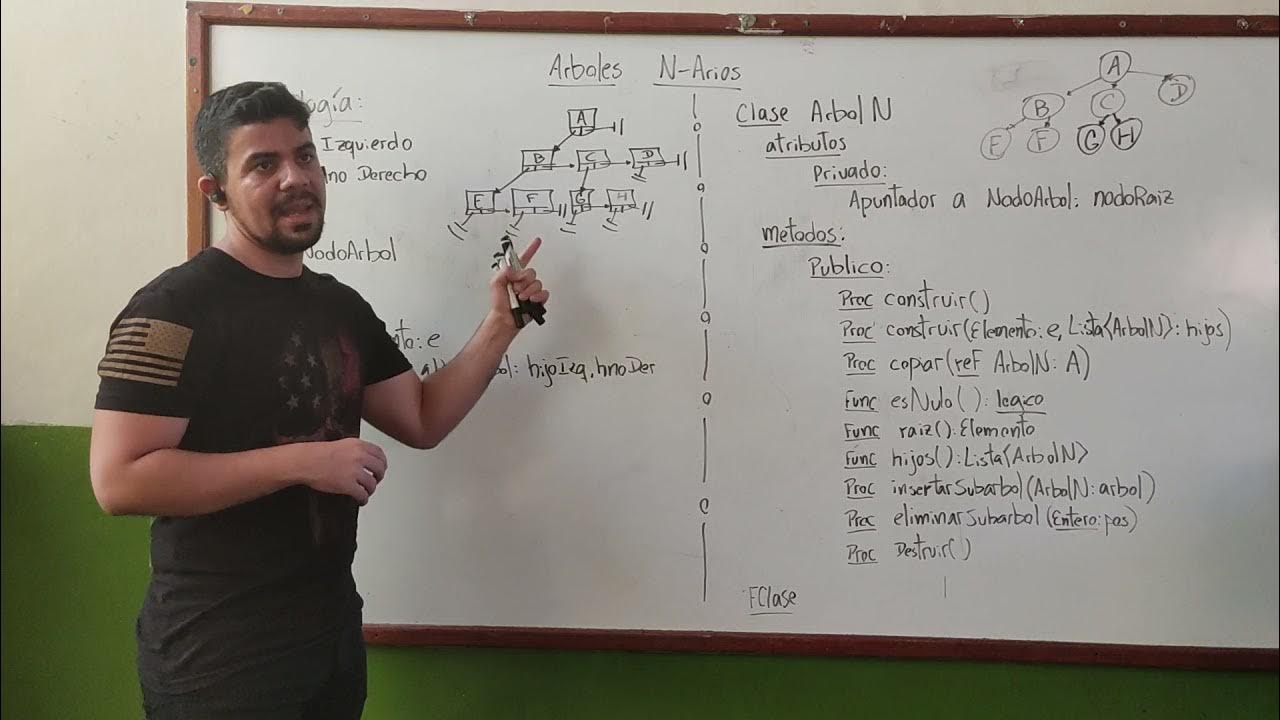 Arboles N-Arios
ología:
Izquierdo
no Derecho
NodoArbol
nto: e
bol: hijoIzq, hnoDer
A
B C D
E F G H
Clase ArbolN
atributos
Privado:
Apuntador a NodoArbol: nodoRaiz
metodos:
Publico:
Proc construir()
Proc construir(Elemento: e, Lista<ArbolN>: hijos)
Proc copiar(ref ArbolN: A)
Func esNulo(): logico
Func raiz(): Elemento
Func hijos(): Lista<ArbolN>
Proc insertarSubarbol(ArbolN: arbol)
Proc eliminarSubarbol(Entero: pos)
Proc Destruir()
FClase
A
B C D
E F G H